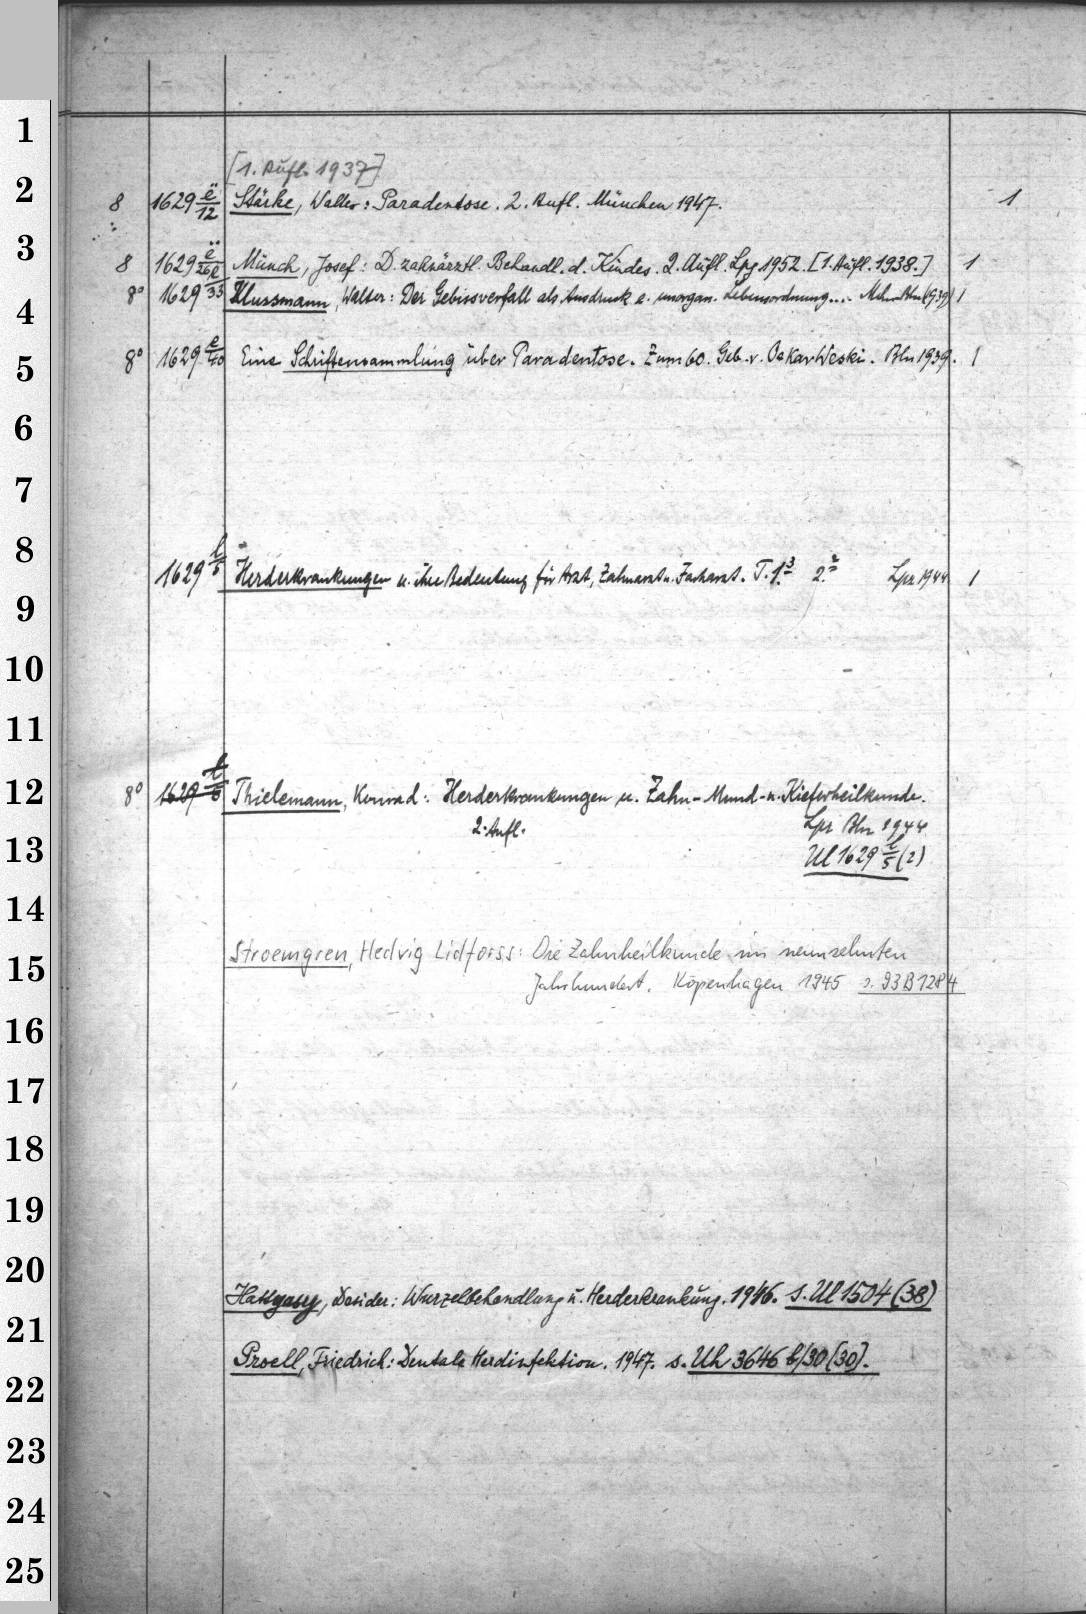 1
[1. Aufl. 1937]
2
8 1629 ë/12 Stärke, Walter: Paradentose. 2. Aufl. München 1947. 1
3
8 1629 ë/26 Münch, Josef: D. zahnärztl. Behandl. d. Kindes. 2. Aufl. Lpz. 1952. [1. Aufl. 1938.] 1
8° 1629 /33 Klussmann, Walter: Der Gebissverfall als Ausdruck e. unorgan. Lebensordnung... (1939) 1
4
8° 1629 e/40 Eine Schriftensammlung über Paradentose. Zum 60. Geb. v. Oskar Weski. Bln 1939. 1
5
6
7
8
1629 l/5 Herderkrankungen u. ihre Bedeutung für Arzt, Zahnarzt u. Facharzt. T. 1.3 2.2 Lpz 1944 1
9
10
11
12
8° 1629 l/6 Thielemann, Konrad: Herderkrankungen u. Zahn-Mund-u. Kieferheilkunde.
2. Aufl. Lpz Bln 1944
13
Ul 1629 l/5 (2)
14
Stroemgren, Hedvig Lidforss: Die Zahnheilkunde im neunzehnten
15
Jahrhundert. Kopenhagen 1945 s. 93 B 1284
16
17
18
19
20
Hattyasy, Desider: Wurzelbehandlung u. Herderkrankung. 1946. s. Ul 1504 (38)
21
Proell, Friedrich: Dentale Herdinfektion. 1947. s. Uh 3646 b/30 [30].
22
23
24
25